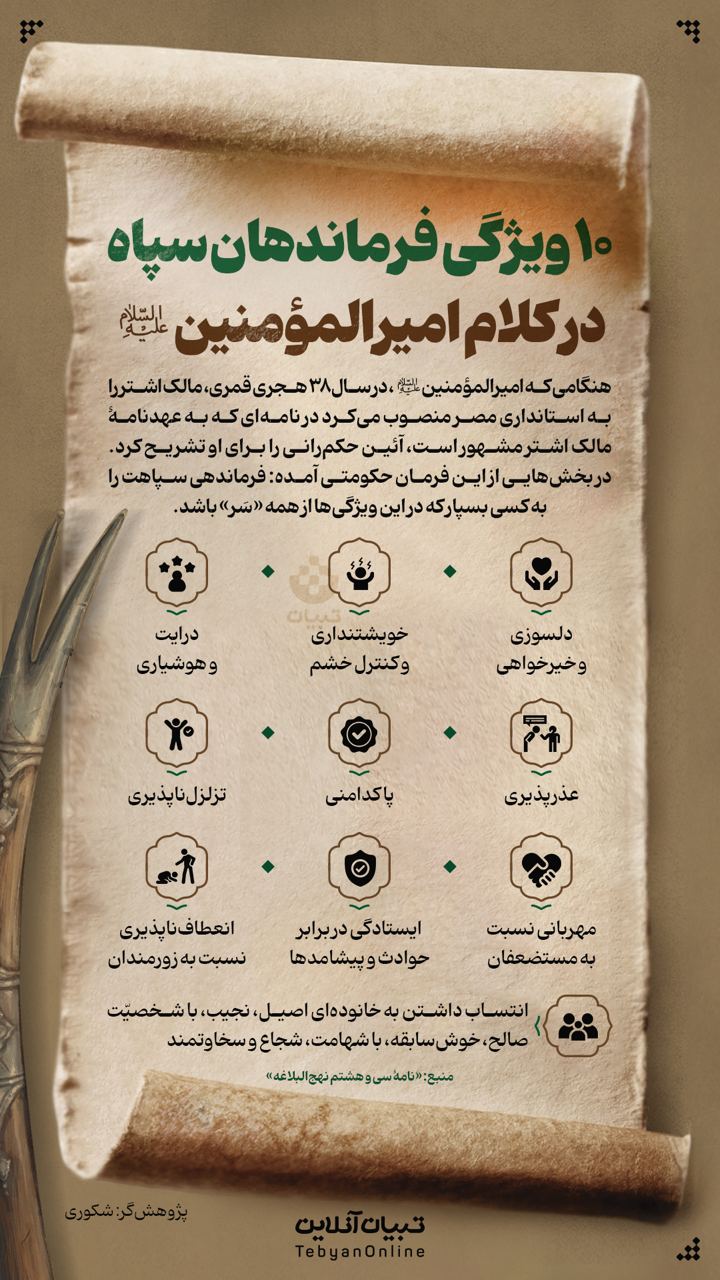 ۱۰ ویژگی فرماندهان سپاه
در کلام امیرالمؤمنین علیه السلام
هنگامی که امیرالمؤمنین علیه السلام، در سال ۳۸ هجری قمری، مالک اشتر را
به استانداری مصر منصوب می‌کرد در نامه‌ای که به عهدنامهٔ
مالک اشتر مشهور است، آئین حکم‌رانی را برای او تشریح کرد.
در بخش‌هایی از این فرمان حکومتی آمده: فرماندهی سپاهت را
به کسی بسپار که در این ویژگی‌ها از همه «سَر» باشد.
دلسوزی
و خیرخواهی
خویشتنداری
و کنترل خشم
درایت
و هوشیاری
تبیان
عذرپذیری
پاکدامنی
تزلزل‌ناپذیری
مهربانی نسبت
به مستضعفان
ایستادگی در برابر
حوادث و پیشامدها
انعطاف‌ناپذیری
نسبت به زورمندان
انتساب داشتن به خانوده‌ای اصیل، نجیب، با شخصیّت
صالح، خوش‌سابقه، با شهامت، شجاع و سخاوتمند
منبع: «نامهٔ سی و هشتم نهج‌البلاغه»
پژوهش‌گر: شکوری
تبیان آنلاین
TebyanOnline